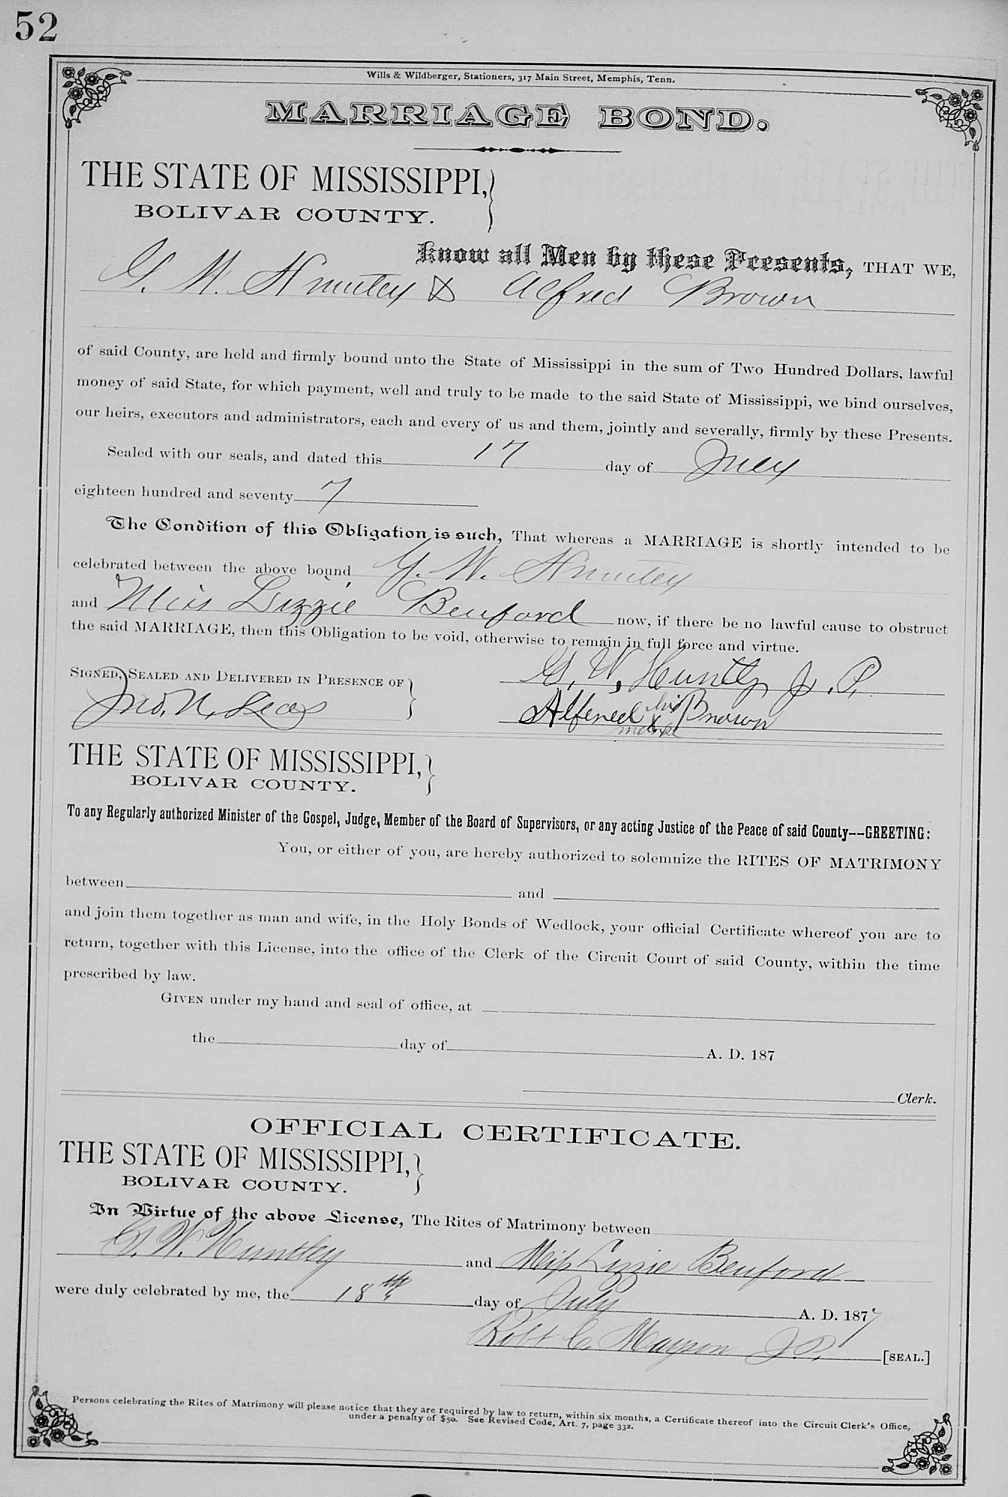 52
Wills & Wildberger, Stationers, 317 Main Street, Memphis, Tenn.
MARRIAGE BOND.
THE STATE OF MISSISSIPPI,
BOLIVAR COUNTY.
Know all Men by these Presents, THAT WE,
G. W. Huntley & Alfred Brown
of said County, are held and firmly bound unto the State of Mississippi in the sum of Two Hundred Dollars, lawful
money of said State, for which payment, well and truly to be made to the said State of Mississippi, we bind ourselves,
our heirs, executors and administrators, each and every of us and them, jointly and severally, firmly by these Presents.
Sealed with our seals, and dated this 17 day of July
eighteen hundred and seventy 7
The Condition of this Obligation is such, That whereas a MARRIAGE is shortly intended to be
celebrated between the above bound G. W. Huntley
and Miss Lizzie Benford now, if there be no lawful cause to obstruct
the said MARRIAGE, then this Obligation to be void, otherwise to remain in full force and virtue.
SIGNED, SEALED AND DELIVERED IN PRESENCE OF G. W. Huntly J. P.
Jno. N. Alfered his X mark Brown
THE STATE OF MISSISSIPPI,
BOLIVAR COUNTY.
To any Regularly authorized Minister of the Gospel, Judge, Member of the Board of Supervisors, or any acting Justice of the Peace of said County--GREETING:
You, or either of you, are hereby authorized to solemnize the RITES OF MATRIMONY
between and
and join them together as man and wife, in the Holy Bonds of Wedlock, your official Certificate whereof you are to
return, together with this License, into the office of the Clerk of the Circuit Court of said County, within the time
prescribed by law.
GIVEN under my hand and seal of office, at
the day of A. D. 187
Clerk.
OFFICIAL CERTIFICATE.
THE STATE OF MISSISSIPPI,
BOLIVAR COUNTY.
In Virtue of the above License, The Rites of Matrimony between
G. W. Huntley and Miss Lizzie Benford
were duly celebrated by me, the 18th day of July A. D. 1877
Robt C. Mayson J. P. [SEAL.]
Persons celebrating the Rites of Matrimony will please notice that they are required by law to return, within six months, a Certificate thereof into the Circuit Clerk's Office,
under a penalty of $50. See Revised Code, Art. 7, page 332.